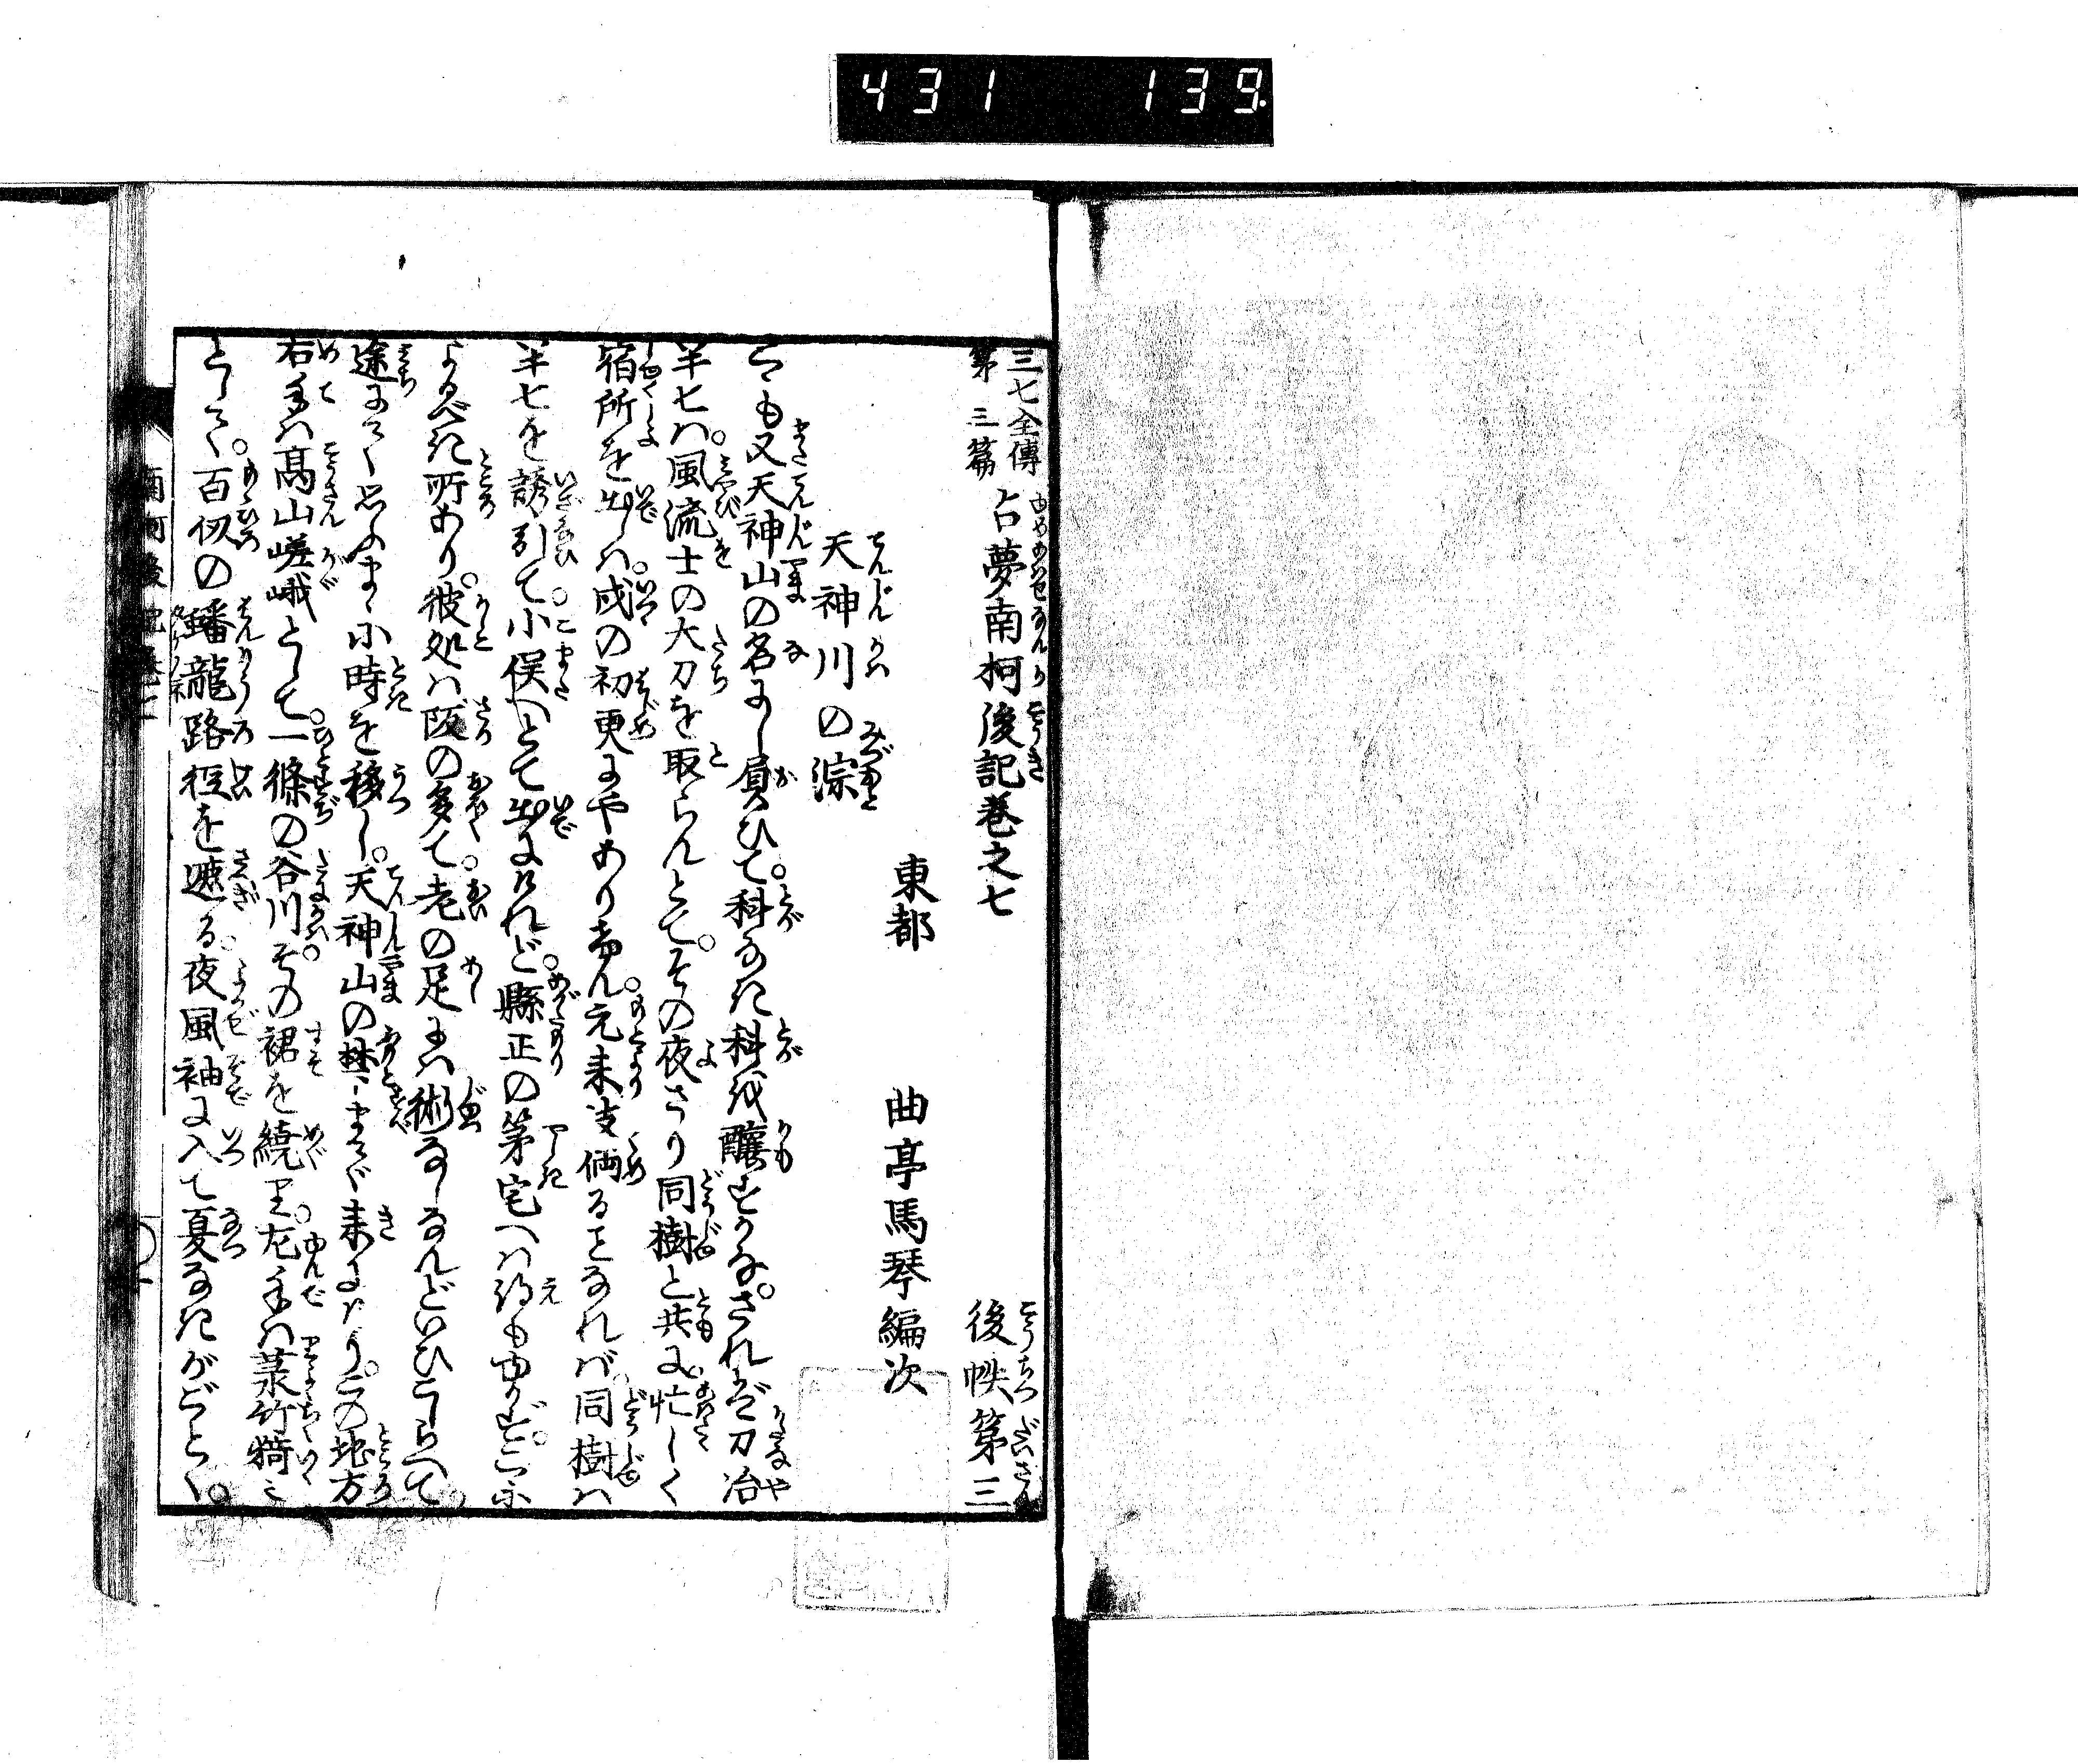 431 139
三七全傳
第三篇
占夢南柯後記巻之七
後帙第三
東都 曲亭馬琴編次
天神川の淙
こゝも又天神山の名にし負ひて。科なき科を醸すかな。されば刀冶
半七は。風流士の大刀を取らんとて。その夜さり同樹と共に忙しく
宿所を出しは。戌の初更にやありけん。元来支倆ることなれば同樹は
半七を誘引て。小俣へとて出にけれど。縣正の第宅へは得もゆかず。こゝに
よるべき所あり。彼処は阪の多て。老の足には術なしなんどいひこしらへて
途にてくらふまゝ小時を移し。天神山の麓まで来にけり。この地方
右手は高山嵯峨として。一條の谷川その裙を繞り。左手は菉竹猗々
として。百仭の蟠龍路径を遮る。夜風袖に入て夏なきがごとく。
南柯後記巻七